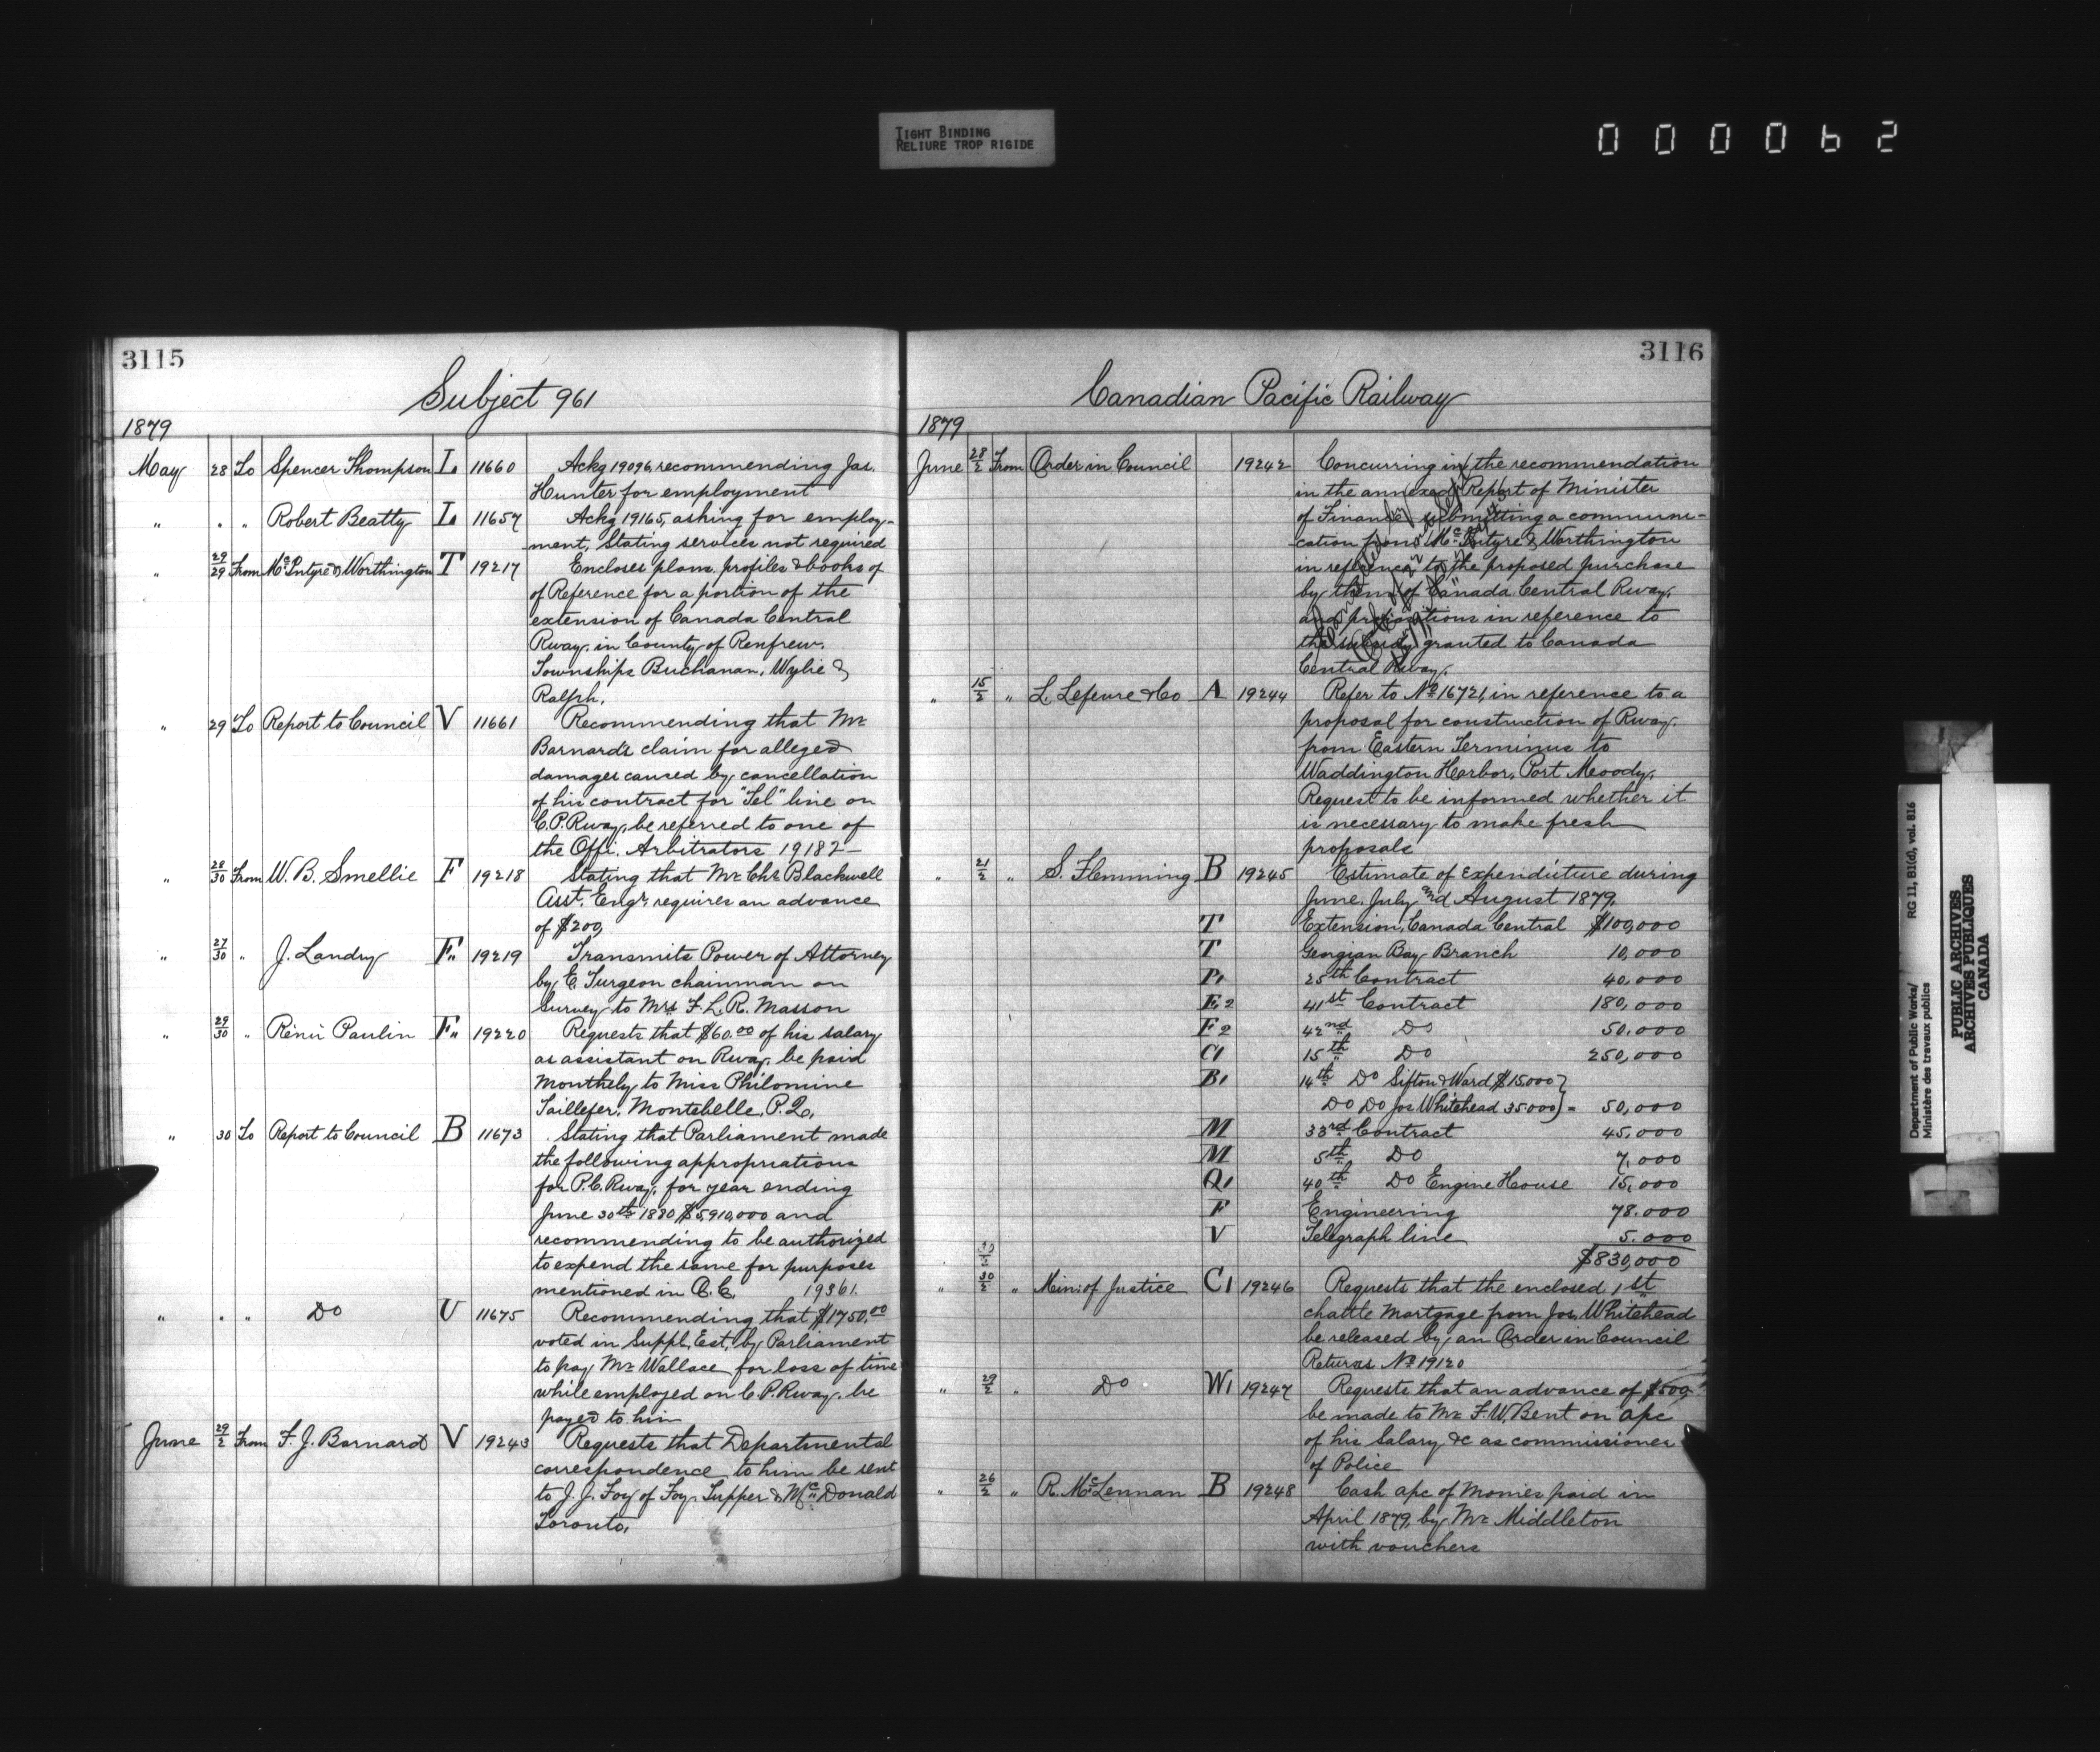 TIGHT BINDING
RELIURE TROP RIGIDE
000062
3115
Subject 961
1879
May 28 To Spencer Thompson L 11660 Ackg 19096, recommending Jas.
Hunter for employment
" . " Robert Beatty L 11657 Ackg 19165, asking for employ-
ment, Stating services not required
" 29/29 From McIntyre & Worthington T 19217 Encloses plans, profiles & books of
of Reference for a portion of the
extension of Canada Central
Rway. in County of Renfrew.
Townships Buchanan, Wylie &
Ralph.
" 29 To Report to Council V 11661 Recommending that Mr
Barnard's claim for alleged
damages caused by cancellation
of his contract for "Tel" line on
C.P.Rway, be referred to one of
the Offi. Arbitrators 19182 —
" 28/30 From W. B. Smellie F 19218 Stating that Mr Chs Blackwell
Asst. Engr requires an advance
of $200,
" 27/30 " J. Landry F" 19219 Transmits Power of Attorney
by E. Turgeon chainman on
Survey to Mrs F. L. R. Masson
" 29/30 " Rénü Paulin F" 19220 Requests that $60.00 of his salary
as assistant on Rway, be paid
Monthely to Miss Philomine
Taillefer, Montebelle, P.Q.
" 30 To Report to Council B 11673 Stating that Parliament made
the following appropriations
for P.C.Rway, for year ending
June 30th 1880, $5,910,000 and
recommending to be authorized
to expend the same for purposes
mentioned in O.C. 19361.
" . " Do U 11675 Recommending that $1750,00
voted in Suppl. Est, by Parliament
to pay Mr Wallace for loss of time
while employed on C.P.Rway. be
payed to him
June 29/2 From F. J. Barnard V 19243 Requests that Departmental
correspondence to him be sent
to J. J. Foy of Foy, Tupper & McDonald
Toronto,
3116
Canadian Pacific Railway
1879
June 28/2 From Order in Council 19242 Concurring in the recommendation
in the annexed Report of Minister
of Finance submitting a communi-
cation from McIntyre & Worthington
in reference to the proposed purchase
by them of Canada Central Rway,
and propositions in reference to
the subsidy granted to Canada
Central Rway.
" 15/2 " L. Lefeure & Co A 19244 Refer to No 16721, in reference to a
proposal for construction of Rway.
from Eastern Terminus to
Waddington Harbor, Port Moody.
Request to be informed whether it
is necessary to make fresh
proposals
" 21/2 " S. Flemming B 19245 Estimate of Expenditure during
June, July and August 1879.
T Extension, Canada Central $100,000
T Georgian Bay Branch 10,000
P1 25th Contract 40,000
E2 41st Contract 180,000
F2 42nd Do 50,000
C1 15th Do 250,000
B1 14th Do Sifton & Ward $15,000}
Do Do Jos. Whitehead 35000} = 50,000
M 33rd Contract 45,000
M 5th Do 7,000
Q1 40th Do Engine House 15,000
F Engineering 78.000
V Telegraph line 5.000
$830,000
" 30/2 " Min: of Justice C1 19246 Requests that the enclosed 1st
chattle Mortgage from Jos. Whitehead
be released by an Order in Council
Returns No 19120
" 29/2 " Do W1 19247 Requests that an advance of $500,
be made to Mr F. W. Bent on a/c
of his Salary &c as commissioner
of Police
" 26/2 " R. McLennan B 19248 Cash a/c of Monies paid in
April 1879, by Mr Middleton
with vouchers
Department of Public Works/ RG 11, B1(d), vol. 816
Ministère des travaux publics
PUBLIC ARCHIVES
ARCHIVES PUBLIQUES
CANADA